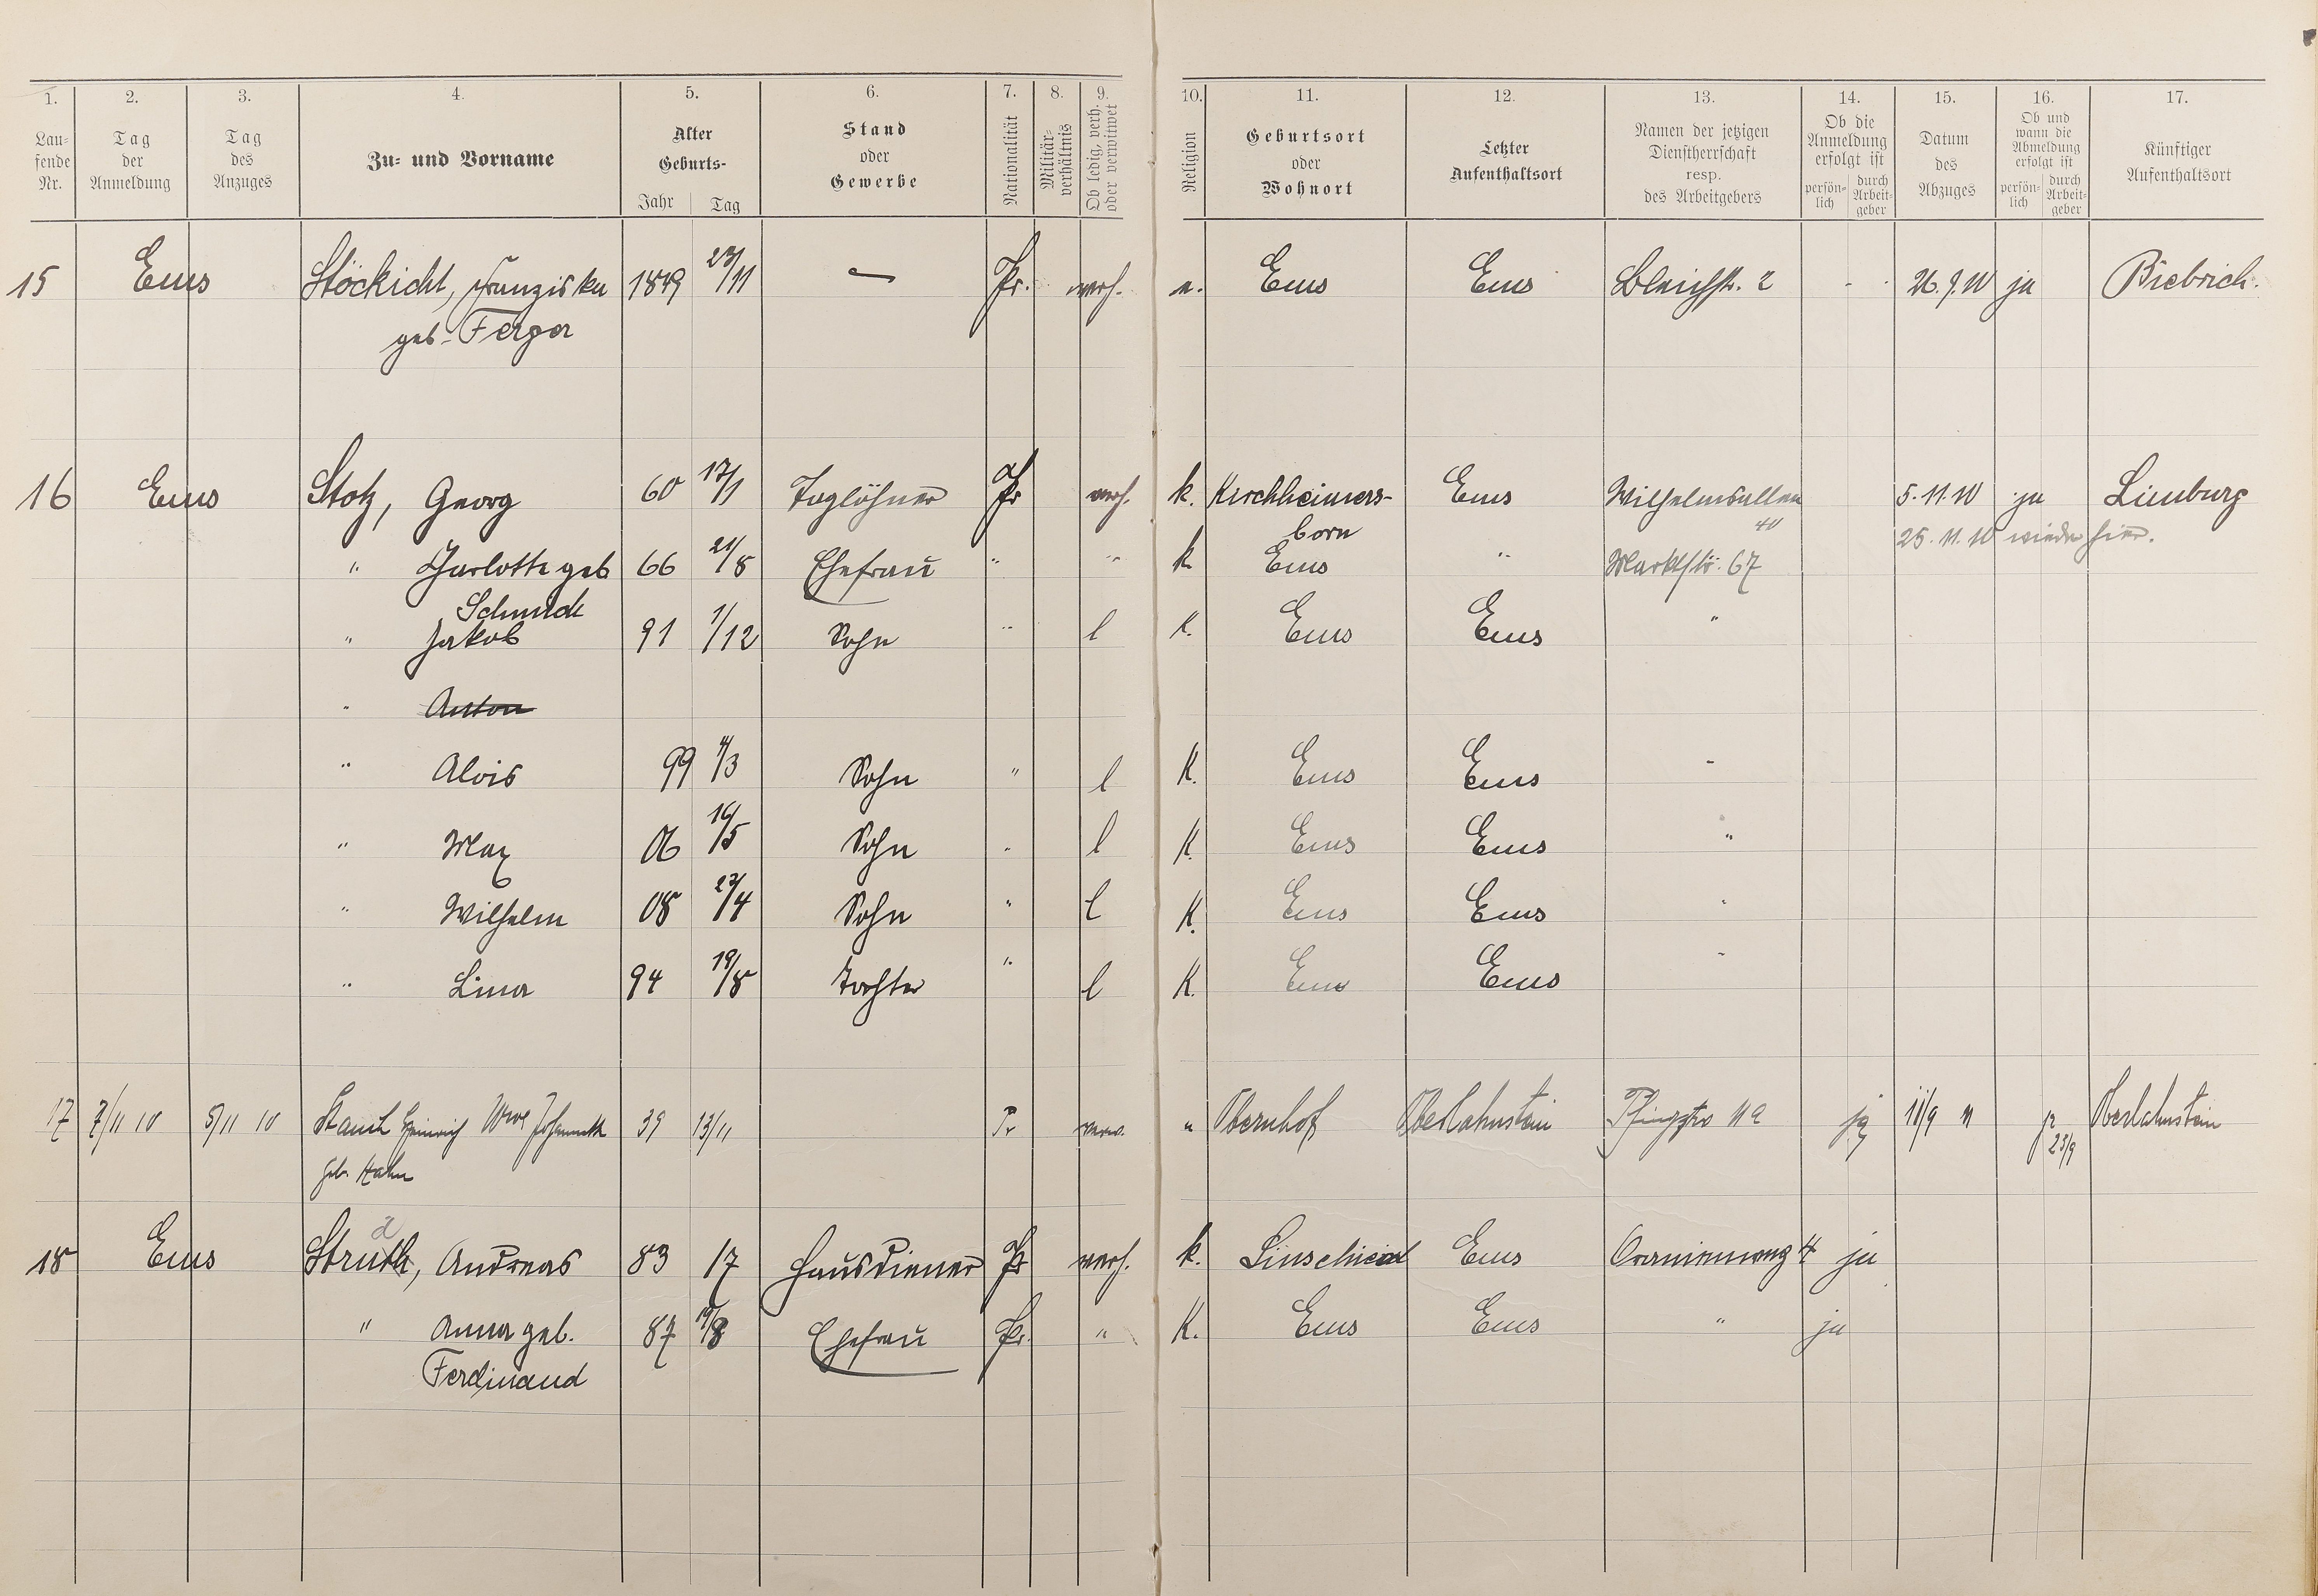 1. 2. 3. 4. 5. 6. 7. 8. 9. 10. 11. 12. 13. 14. 15. 16. 17.
Lau-
fende
Nr.
Tag
der
Anmeldung
Tag
des
Anzuges
Zu- und Vorname
Alter
Geburts-
Jahr Tag
Stand
oder
Gewerbe
Nationalität
Militär-
verhältnis
Ob ledig, verh.
oder verwitwet
Religion
Geburtsort
oder
Wohnort
Letzter
Aufenthaltsort
Namen der jetzigen
Dienstherrschaft
resp.
des Arbeitgebers
Ob die
Anmeldung
erfolgt ist
persön-
lich
durch
Arbeit-
geber
Datum
des
Abzuges
Ob und
wann die
Abmeldung
erfolgt ist
persön-
lich
durch
Arbeit-
geber
Künftiger
Aufenthaltsort
15 Ems Stöckicht, Franziska 1849 23/11 — Pr. verh. e. Ems Ems Bleichstr. 2 - - 26.9.10 ja Biebrich.
geb. Ferger
16 Ems Stotz, Georg 60 17/1 Taglöhner Pr verh. k. Kirchheimers- Ems Wilhelmsallee 5.11.10 ja Limburg
born 40 25.11.10 wieder hier.
" Charlotte geb 66 21/8 Ehefrau " " k Ems " Marktstr. 67
Schmidt
" Jakob 91 1/12 Sohn " l K. Ems Ems "
" Anton
" Alois 99 4/3 Sohn " l K. Ems Ems "
" Max 06 16/5 Sohn " l K. Ems Ems "
" Wilhelm 08 27/4 Sohn " l K. Ems Ems "
" Lina 94 19/8 Tochter " l K. Ems Ems "
17 7/11 10 5/11 10 Heinrich Wwe 39 13/11 Pr verw. e Obernhof Oberlahnstein 11a ja 11/9 11 ja Oberlahnstein
23/9
geb. Hahn
d
18 Ems Struth, Andreas 83 17 Hausdiener Pr verh. k. Linscheid Ems Oranienweg 4 ja
" Anna geb. 87 19/8 Ehefrau Pr. " K. Ems Ems " ja
Ferdinand